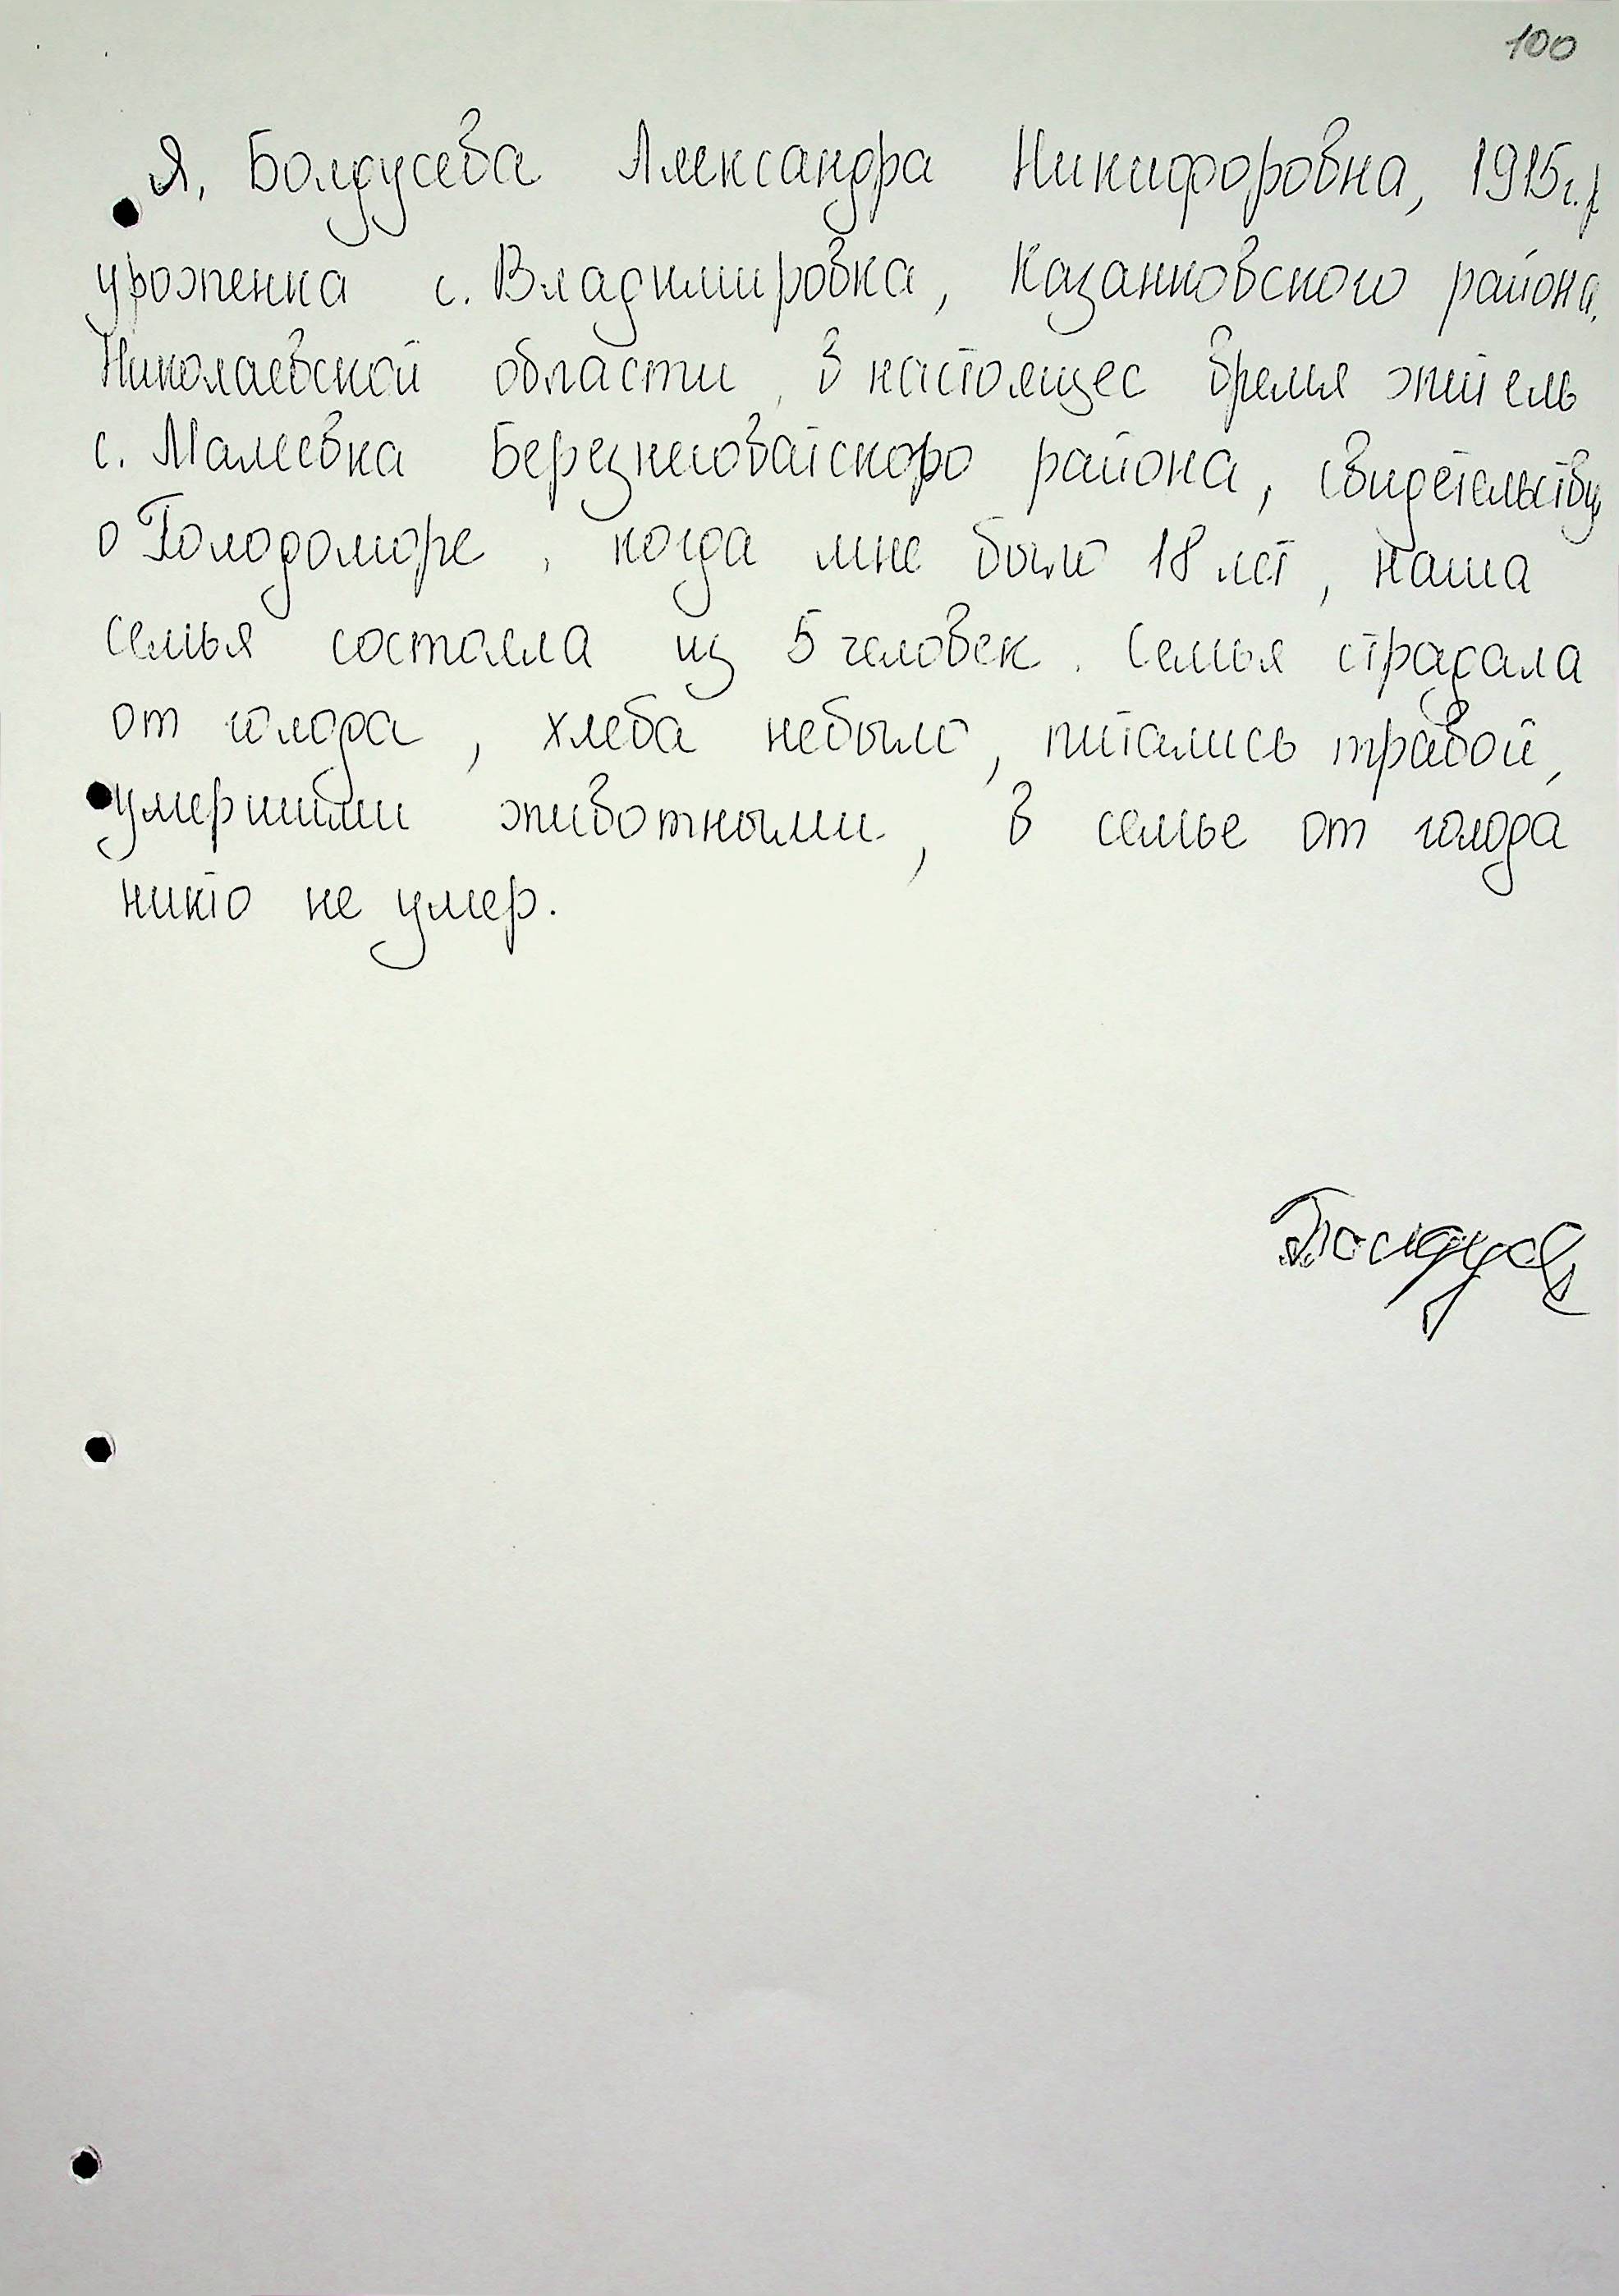 100
Я, Болдусева Александра Никифоровна, 1915г.р
уроженка с. Владимировка, Казанковского района,
Николаевской области, в настоящее время житель
с. Малеевка Березнеговатского района, свидетельствую
о Голодоморе, когда мне было 18 лет, наша
семья состояла из 5 человек. Семья страдала
от голода, хлеба небыло, питались травой,
умершими животными, в семье от голода
никто не умер.